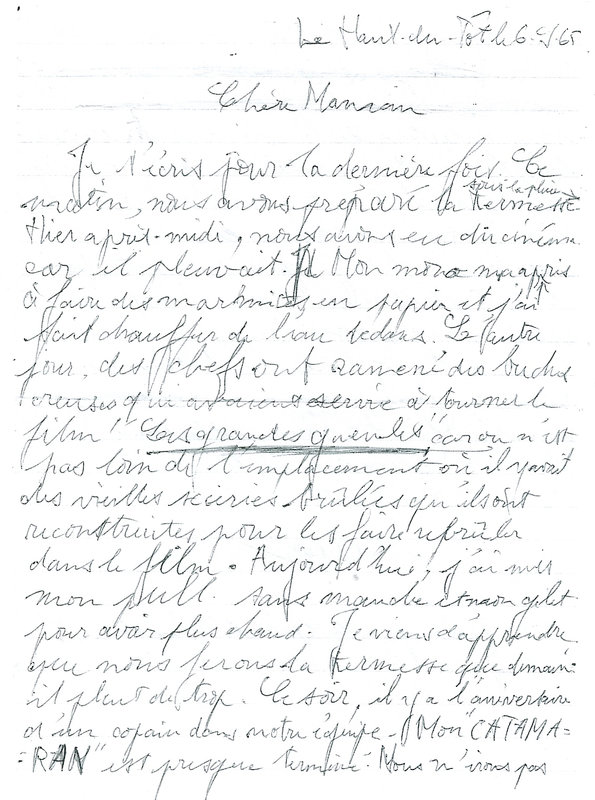 Le Haut-du-Tôt le 6-5-65
Chère Maman
Je t'écris pour la dernière fois. Ce
matin, nous avons préparé la kermesse sous la pluie
Hier après-midi, nous avons eu du cinéma
car il pleuvait. Mon mono m'a appris
à faire des marmites en papier et j'ai
fait chauffer de l'eau dedans. L'autre
jour, des chefs ont ramené des buches
creuses qui avaient servie à tourner le
film "Les grandes gueules" car on n'est
pas loin de l'emplacement où il y avait
des vieilles scieries brûlées qu'ils ont
reconstruites pour les faire rebrûler
dans le film. Aujourd'hui, j'ai mis
mon pull sans manche et mon gilet
pour avoir plus chaud. Je viens d'apprendre
que nous ferons la kermesse que demain:
il pleut de trop. Ce soir, il y a l'aniversaire
d'un copain dans notre équipe. Mon "CATAMA=
=RAN" est presque terminé. Nous n'irons pas